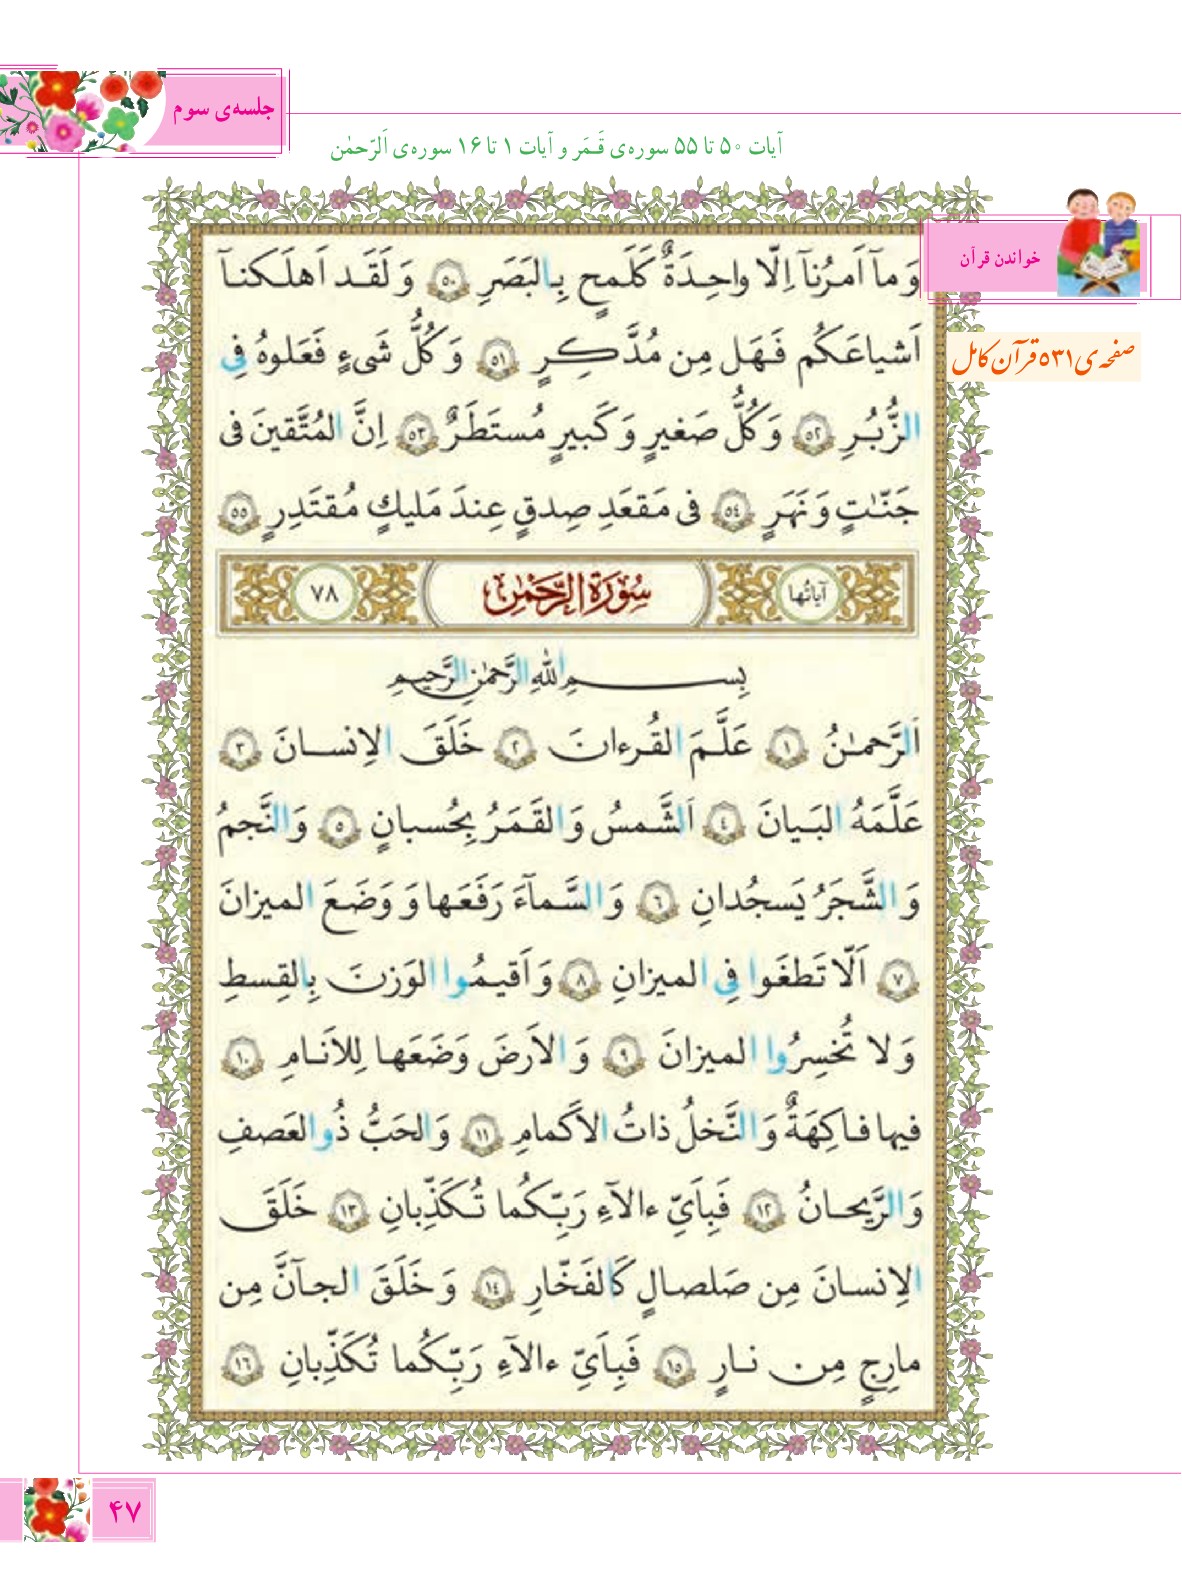 جلسه‌ی سوم
آیات ۵۰ تا ۵۵ سوره‌ی قَـمَر و آیات ۱ تا ۱۶ سوره‌ی اَلرّحمٰن
خواندن قرآن
صفحه‌ی ۵۳۱ قرآن کامل
وَ مآ اَمرُنآ اِلّا واحِدَةٌ كَلَمحٍ بِالبَصَرِ ﴿٥٠﴾ وَ لَقَد اَهلَكنآ
اَشياعَكُم فَهَل مِن مُدَّكِرٍ ﴿٥١﴾ وَ كُلُّ شَىءٍ فَعَلوهُ فِى
الزُّبُرِ ﴿٥٢﴾ وَ كُلُّ صَغيرٍ وَ كَبيرٍ مُستَطَرٌ ﴿٥٣﴾ اِنَّ المُتَّقينَ فى
جَنّاتٍ وَ نَهَرٍ ﴿٥٤﴾ فى مَقعَدِ صِدقٍ عِندَ مَليكٍ مُقتَدِرٍ ﴿٥٥﴾
آياتُها سُورَةُ الرَّحْمٰنِ ٧٨
بِسمِ اللّٰهِ الرَّحمٰنِ الرَّحيمِ
اَلرَّحمٰنُ ﴿١﴾ عَلَّمَ القُرءانَ ﴿٢﴾ خَلَقَ الاِنسانَ ﴿٣﴾
عَلَّمَهُ البَيانَ ﴿٤﴾ اَلشَّمسُ وَ القَمَرُ بِحُسبانٍ ﴿٥﴾ وَ النَّجمُ
وَ الشَّجَرُ يَسجُدانِ ﴿٦﴾ وَ السَّمآءَ رَفَعَها وَ وَضَعَ الميزانَ
﴿٧﴾ اَلّا تَطغَوا فِى الميزانِ ﴿٨﴾ وَ اَقيمُوا الوَزنَ بِالقِسطِ
وَ لا تُخسِرُوا الميزانَ ﴿٩﴾ وَ الاَرضَ وَضَعَها لِلاَنامِ ﴿١٠﴾
فيها فاكِهَةٌ وَ النَّخلُ ذاتُ الاَكمامِ ﴿١١﴾ وَ الحَبُّ ذُو العَصفِ
وَ الرَّيحانُ ﴿١٢﴾ فَبِاَىِّ ءالآءِ رَبِّكُما تُكَذِّبانِ ﴿١٣﴾ خَلَقَ
الاِنسانَ مِن صَلصالٍ كَالفَخّارِ ﴿١٤﴾ وَ خَلَقَ الجآنَّ مِن
مارِجٍ مِن نارٍ ﴿١٥﴾ فَبِاَىِّ ءالآءِ رَبِّكُما تُكَذِّبانِ ﴿١٦﴾
۴۷